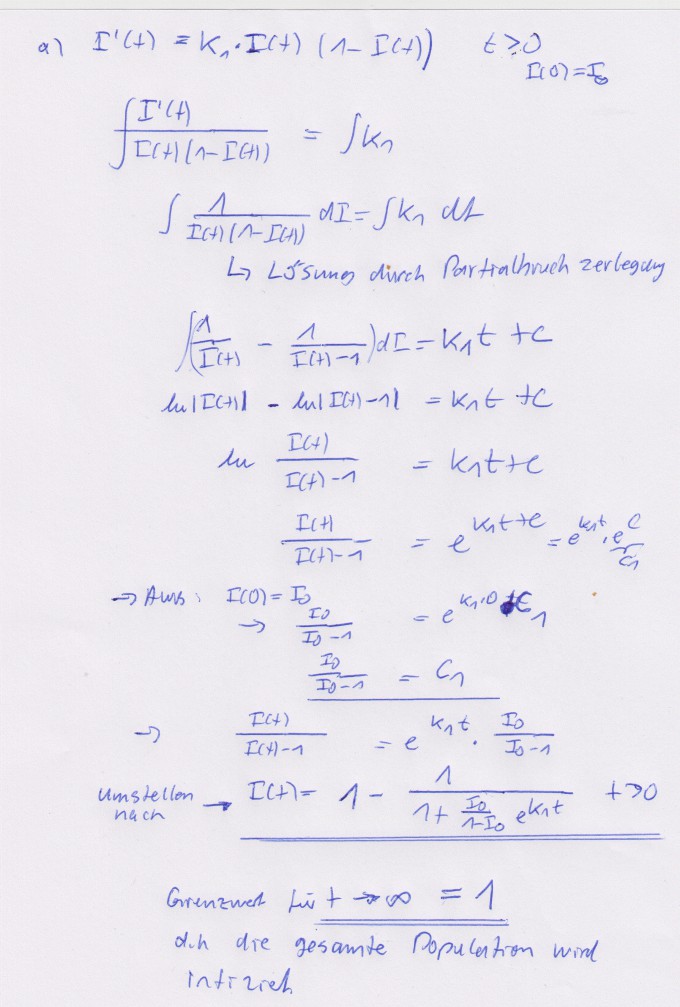 a) I'(t) = K₁·I(t) (1-I(t)) t≥0
I(0)=I₀
∫ I'(t) / I(t)(1-I(t)) = ∫k₁
∫ 1 / I(t)(1-I(t)) dI = ∫k₁ dt
↳ Lösung durch Partialbruch zerlegung
∫(1/I(t) - 1/I(t)-1) dI = k₁t + c
ln|I(t)| - ln|I(t)-1| = k₁t + c
ln I(t) / I(t)-1 = k₁t + c
I(t) / I(t)-1 = e^(k₁t+c) = e^(k₁t) · e^c
C₁
→ AWB: I(0) = I₀
→ I₀ / I₀-1 = e^(k₁·0) C₁
I₀ / I₀-1 = C₁
→ I(t) / I(t)-1 = e^(k₁t) · I₀ / I₀-1
Umstellen nach → I(t) = 1 - 1 / (1 + I₀/1-I₀ e^(k₁t)) t≥0
Grenzwert für t → ∞ = 1
d.h die gesamte Population wird
infiziert